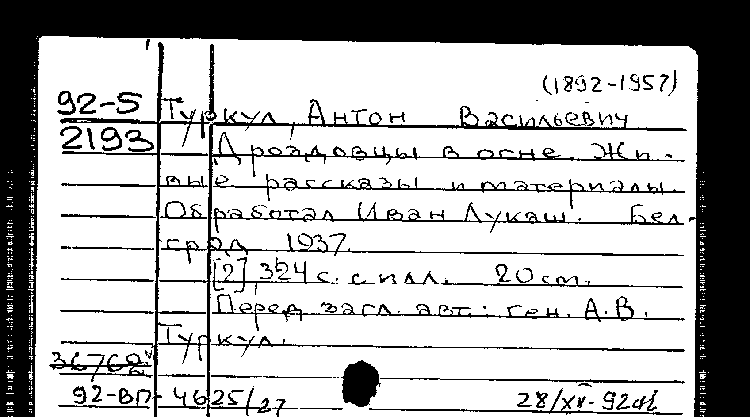 (1892-1957)
92-5 Туркул, Антон Васильевич
2193 Дроздовцы в огне. Жи-
вые рассказы и материалы.
Обработал Иван Лукаш. Бел-
град 1937.
[2], 324 с. с илл. 20 cm.
Перед загл. авт.: ген. А.В.
Туркул.
36762
92-ВП-4625/27 28/XII-92